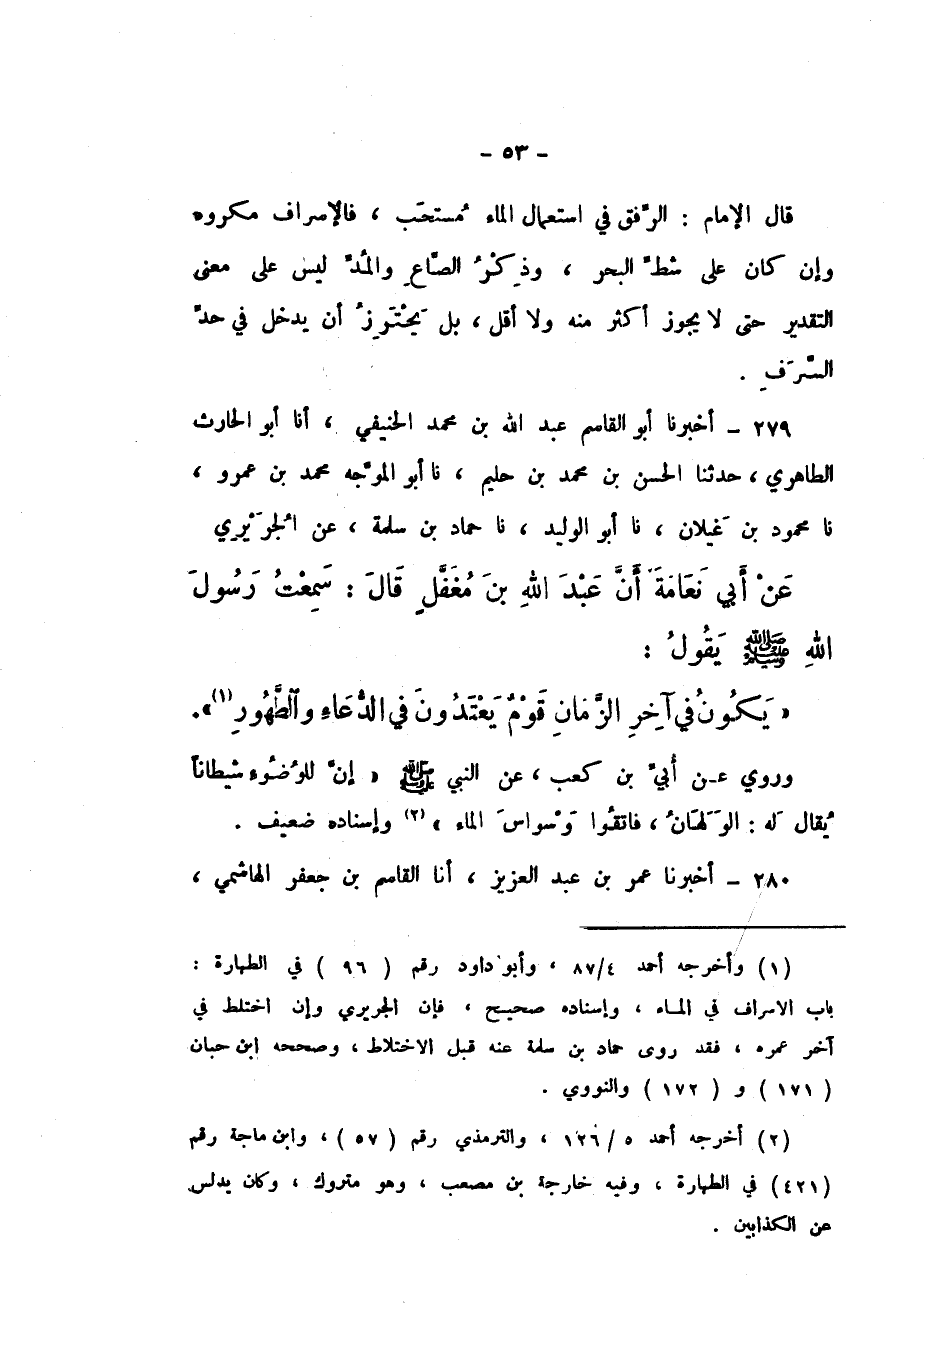 - ٥٣ -
قال الإمام : الرِّفق في استعمال الماء مُستحَب ، فالإسراف مكروه
وإن كان على شطِّ البحر ، وذِكْرُ الصَّاعِ والمُدِّ ليس على معنى
التقدير حتى لا يجوز أكثر منه ولا أقل ، بل يَحْتَرِزُ أن يدخل في حدِّ
السَّرَفِ .
٢٧٩ - أخبرنا أبو القاسم عبد الله بن محمد الحنيفي ، أنا أبو الحارث
الطاهري ، حدثنا الحسن بن محمد بن حليم ، نا أبو الموجّه محمد بن عمرو ،
نا محمود بن غَيلان ، نا أبو الوليد ، نا حماد بن سلمة ، عن الجُرَيْري
عَنْ أَبي نَعَامَةَ أَنَّ عَبْدَ اللهِ بنَ مُغَفَّلٍ قَالَ : سَمِعْتُ رَسُولَ
اللهِ ﷺ يَقُولُ :
« يَكُونُ في آخِرِ الزَّمَانِ قَوْمٌ يَعْتَدُونَ في الدُّعَاءِ والطَّهُورِ (١)».
وروي عـن أُبيِّ بن كعب ، عن النبي ﷺ « إنَّ للوُضُوء شيطاناً
يُقال لَه : الوَلَهانُ ، فاتقُوا وَسْواسَ الماء » (٢) وإسناده ضعيف .
٢٨٠ - أخبرنا عمر بن عبد العزيز ، أنا القاسم بن جعفر الهاشمي ،
(١) وأخرجه أحمد ٨٧/٤ ، وأبو داود رقم ( ٩٦ ) في الطهارة :
باب الاسراف في المـاء ، وإسناده صحيـح ، فإن الجريري وإن اختلط في
آخر عمره ، فقد روى حماد بن سلمة عنه قبل الاختلاط ، وصححه ابن حبان
( ١٧١ ) و ( ١٧٢ ) والنووي .
(٢) أخرجه أحمد ٥ / ١٢٦ ، والترمذي رقم ( ٥٧ ) ، وابن ماجة رقم
(٤٢١) في الطهارة ، وفيه خارجة بن مصعب ، وهو متروك ، وكان يدلس
عن الكذابين .